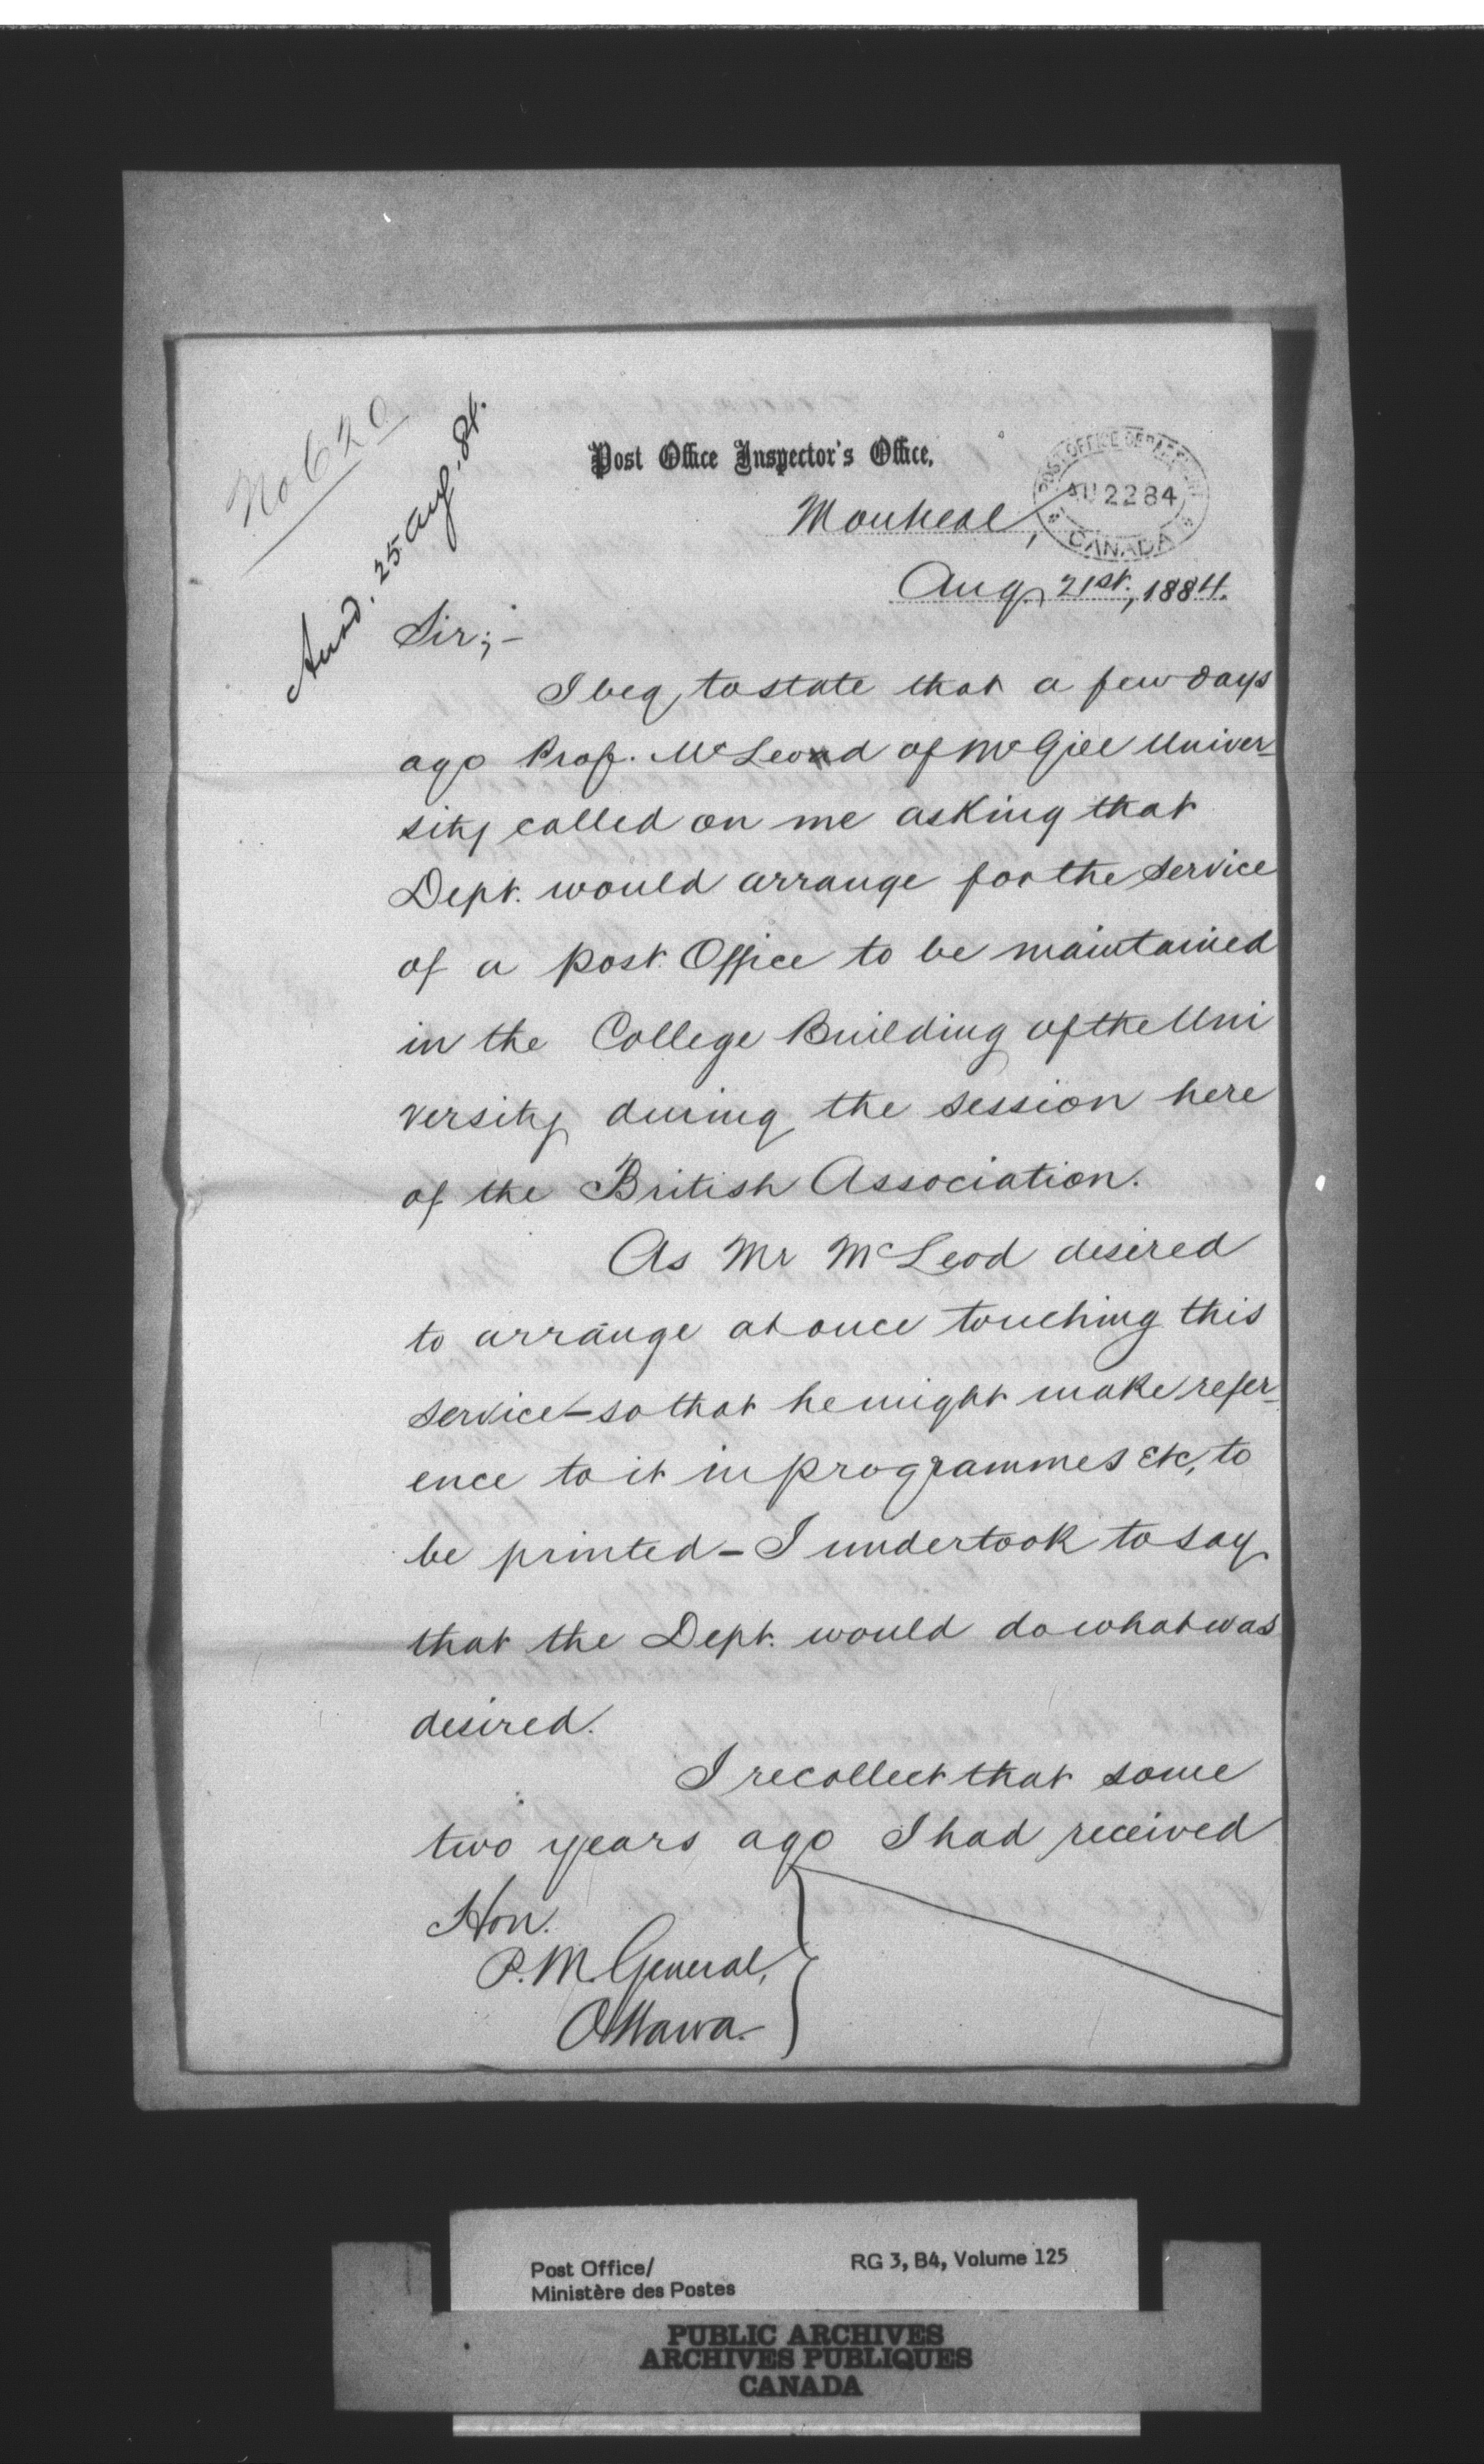 No 620
Ansd. 25 Aug. 84.
Post Office Inspector's Office,
POST OFFICE DEPARTMENT
AU 22 84
CANADA
Montreal,
Aug. 21st., 1884.
Sir;-
I beg to state that a few days
ago Prof. McLeod of McGill Univer-
sity called on me asking that
Dept. would arrange for the service
of a post Office to be maintained
in the College Building of the Uni
versity during the session here
of the British Association.
As Mr McLeod desired
to arrange at once touching this
service-so that he might make refer-
ence to it in programmes Etc, to
be printed-I undertook to say
that the Dept. would do what was
desired.
I recollect that some
two years ago I had received
Hon.
P.M. General,
Ottawa.
Post Office/
Ministère des Postes
RG 3, B4, Volume 125
PUBLIC ARCHIVES
ARCHIVES PUBLIQUES
CANADA